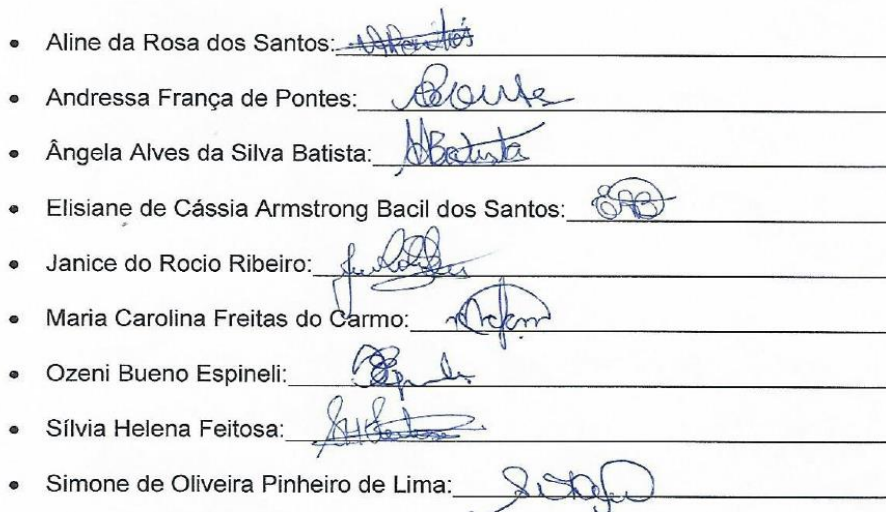 • Aline da Rosa dos Santos:
• Andressa França de Pontes:
• Ângela Alves da Silva Batista: ABatista
• Elisiane de Cássia Armstrong Bacil dos Santos:
• Janice do Rocio Ribeiro:
• Maria Carolina Freitas do Carmo:
• Ozeni Bueno Espineli:
• Sílvia Helena Feitosa:
• Simone de Oliveira Pinheiro de Lima: